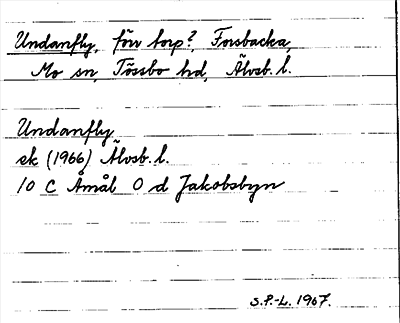 Undanfly, förr torp?, Forsbacka,
Mo sn, Tössbo hd, Älvsb. l.
Undanfly
ek (1966) Älvsb. l.
10 C Åmål 0 d Jakobsbyn
S.P.-L. 1967.